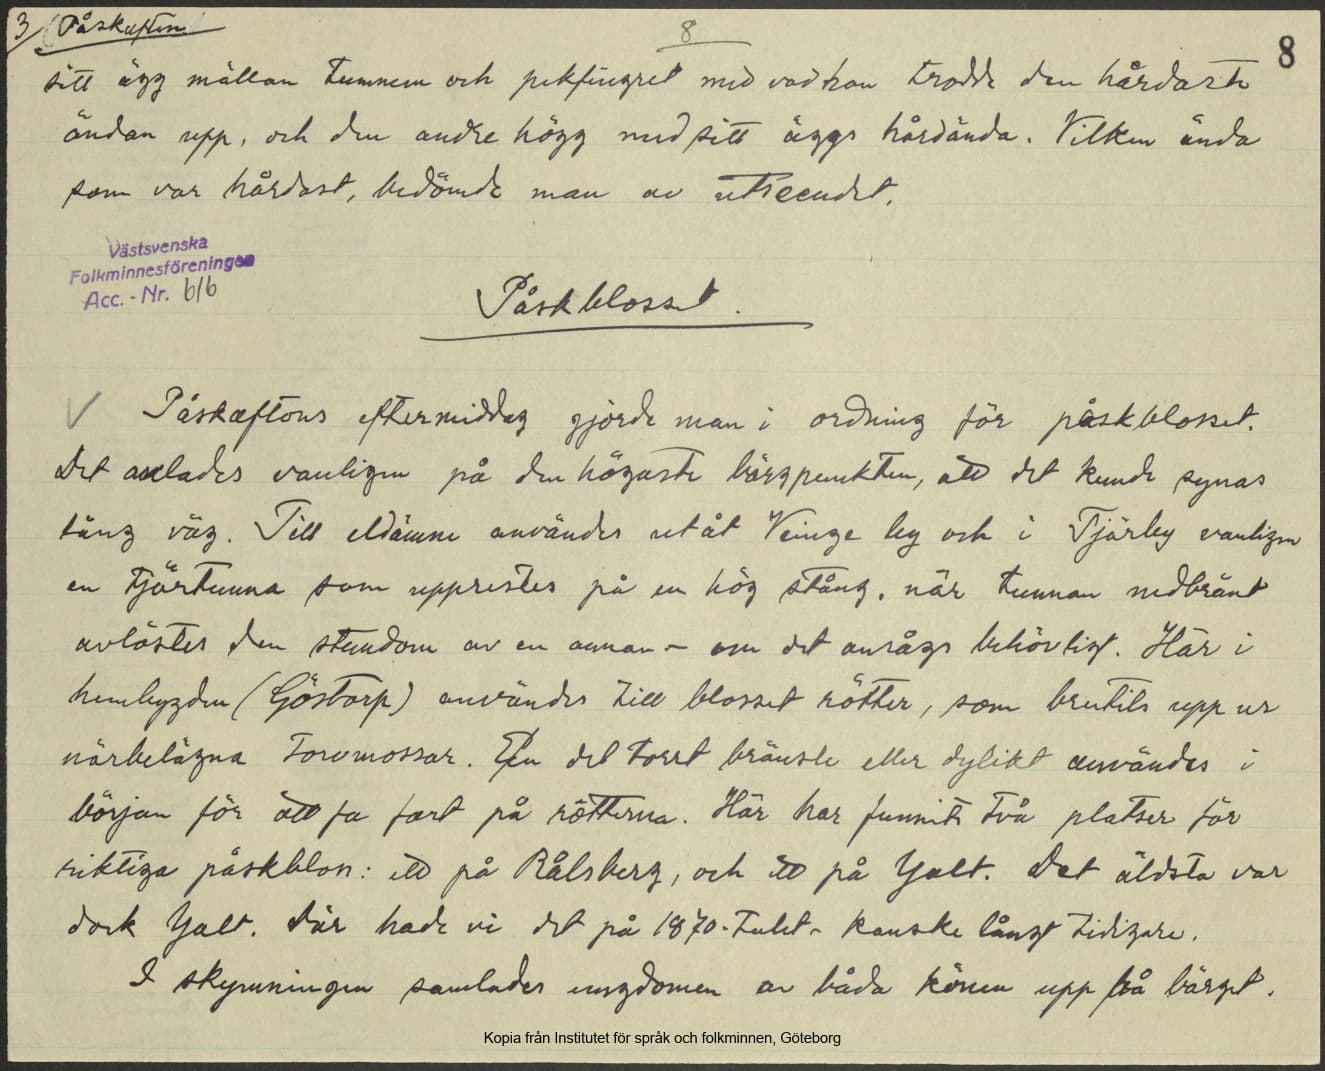 3 (Påskafton)
8
8
sitt ägg mällan tummen och pekfingret med vad han trodde den hårdaste
ändan upp, och den andre högg med sitt äggs hårdända. Vilken ända
som var hårdast, bedömde man av utseendet.
Västsvenska
Folkminnesföreningen
Acc. - Nr. 616
Påskblosset.
√ Påskaftons eftermiddag gjorde man i ordning för påskblosset.
Det anlades vanligen på den högaste bärgpunkten, att det kunde synas
lång väg. Till eldämne användes utåt Veinge by och i Tjärby vanligen
en tjärtunna som upprestes på en hög stång. när tunnan nedbränt
avlöstes den stundom av en annan – om det ansågs behövligt. Här i
hembygden (Göstorp) användes till blosset rötter, som brutits upp ur
närbelägna torvmossar. En del torrt bränsle eller dylikt användes i
början för att fa fart på rötterna. Här har funnits två platser för
riktiga påskbloss: ett på Bålsberg, och ett på Yalt. Det äldsta var
dock Yalt. Där hade vi det på 1870-talet – kanske långt tidigare.
I skymningen samlades ungdomen av båda könen upp på bärget.
Kopia från Institutet för språk och folkminnen, Göteborg